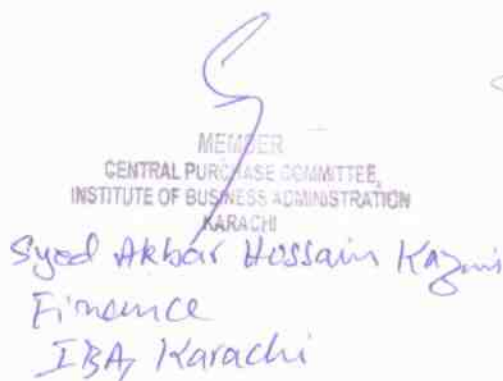 MEMBER
CENTRAL PURCHASE COMMITTEE,
INSTITUTE OF BUSINESS ADMINISTRATION
KARACHI
Syed Akbar Hossain Kazmi
Finance
IBA, Karachi